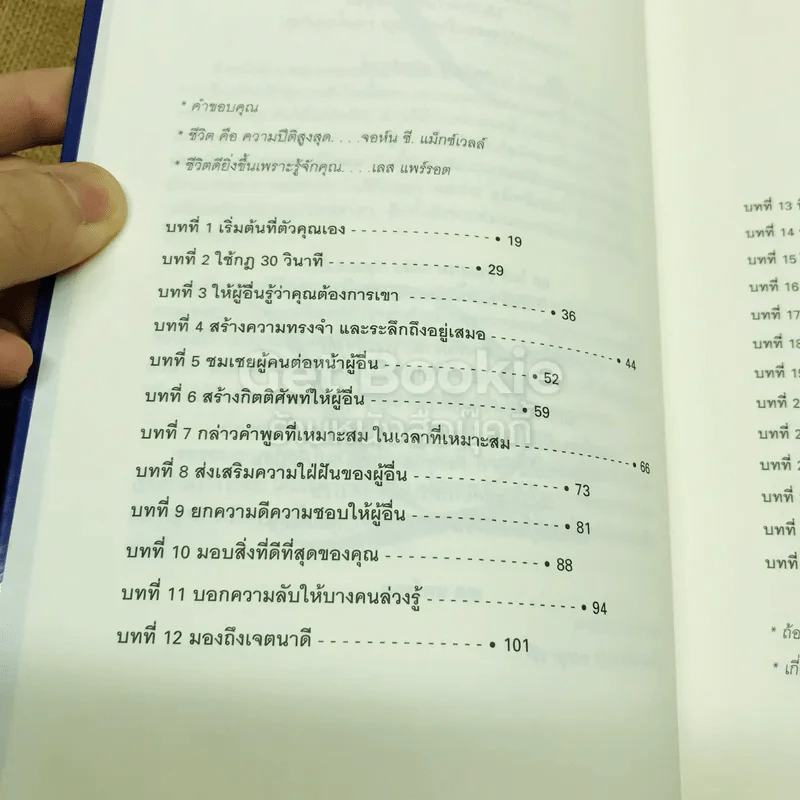 * คำขอบคุณ
* ชีวิต คือ ความปีติสูงสุด. . . .จอห์น ซี. แม็กซ์เวลล์
* ชีวิตดียิ่งขึ้นเพราะรู้จักคุณ. . . .เลส แพร์รอต
บทที่ 1 เริ่มต้นที่ตัวคุณเอง - - - - - - - - - - - - - - - • 19
บทที่ 2 ใช้กฎ 30 วินาที - - - - - - - - - - - - - - - • 29
บทที่ 3 ให้ผู้อื่นรู้ว่าคุณต้องการเขา - - - - - - - - - - - - - - - • 36
บทที่ 4 สร้างความทรงจำ และระลึกถึงอยู่เสมอ - - - - - - - - - - - - - - • 44
บทที่ 5 ชมเชยผู้คนต่อหน้าผู้อื่น - - - - - - - - - - - - - - - • 52
บทที่ 6 สร้างกิตติศัพท์ให้ผู้อื่น - - - - - - - - - - - - - - - • 59
บทที่ 7 กล่าวคำพูดที่เหมาะสม ในเวลาที่เหมาะสม - - - - - - - - - - - - - - • 66
บทที่ 8 ส่งเสริมความใฝ่ฝันของผู้อื่น - - - - - - - - - - - - - - - • 73
บทที่ 9 ยกความดีความชอบให้ผู้อื่น - - - - - - - - - - - - - - - • 81
บทที่ 10 มอบสิ่งที่ดีที่สุดของคุณ - - - - - - - - - - - - - - - • 88
บทที่ 11 บอกความลับให้บางคนล่วงรู้ - - - - - - - - - - - - - - - • 94
บทที่ 12 มองถึงเจตนาดี - - - - - - - - - - - - - - - • 101
GetBookie
ร้านหนังสือบุ๊คกี้
บทที่ 13
บทที่ 14
บทที่ 15
บทที่ 16
บทที่ 17
บทที่
บทที่
บทที่
บทที่
บทที่
บทที่
บทที่
บทที่